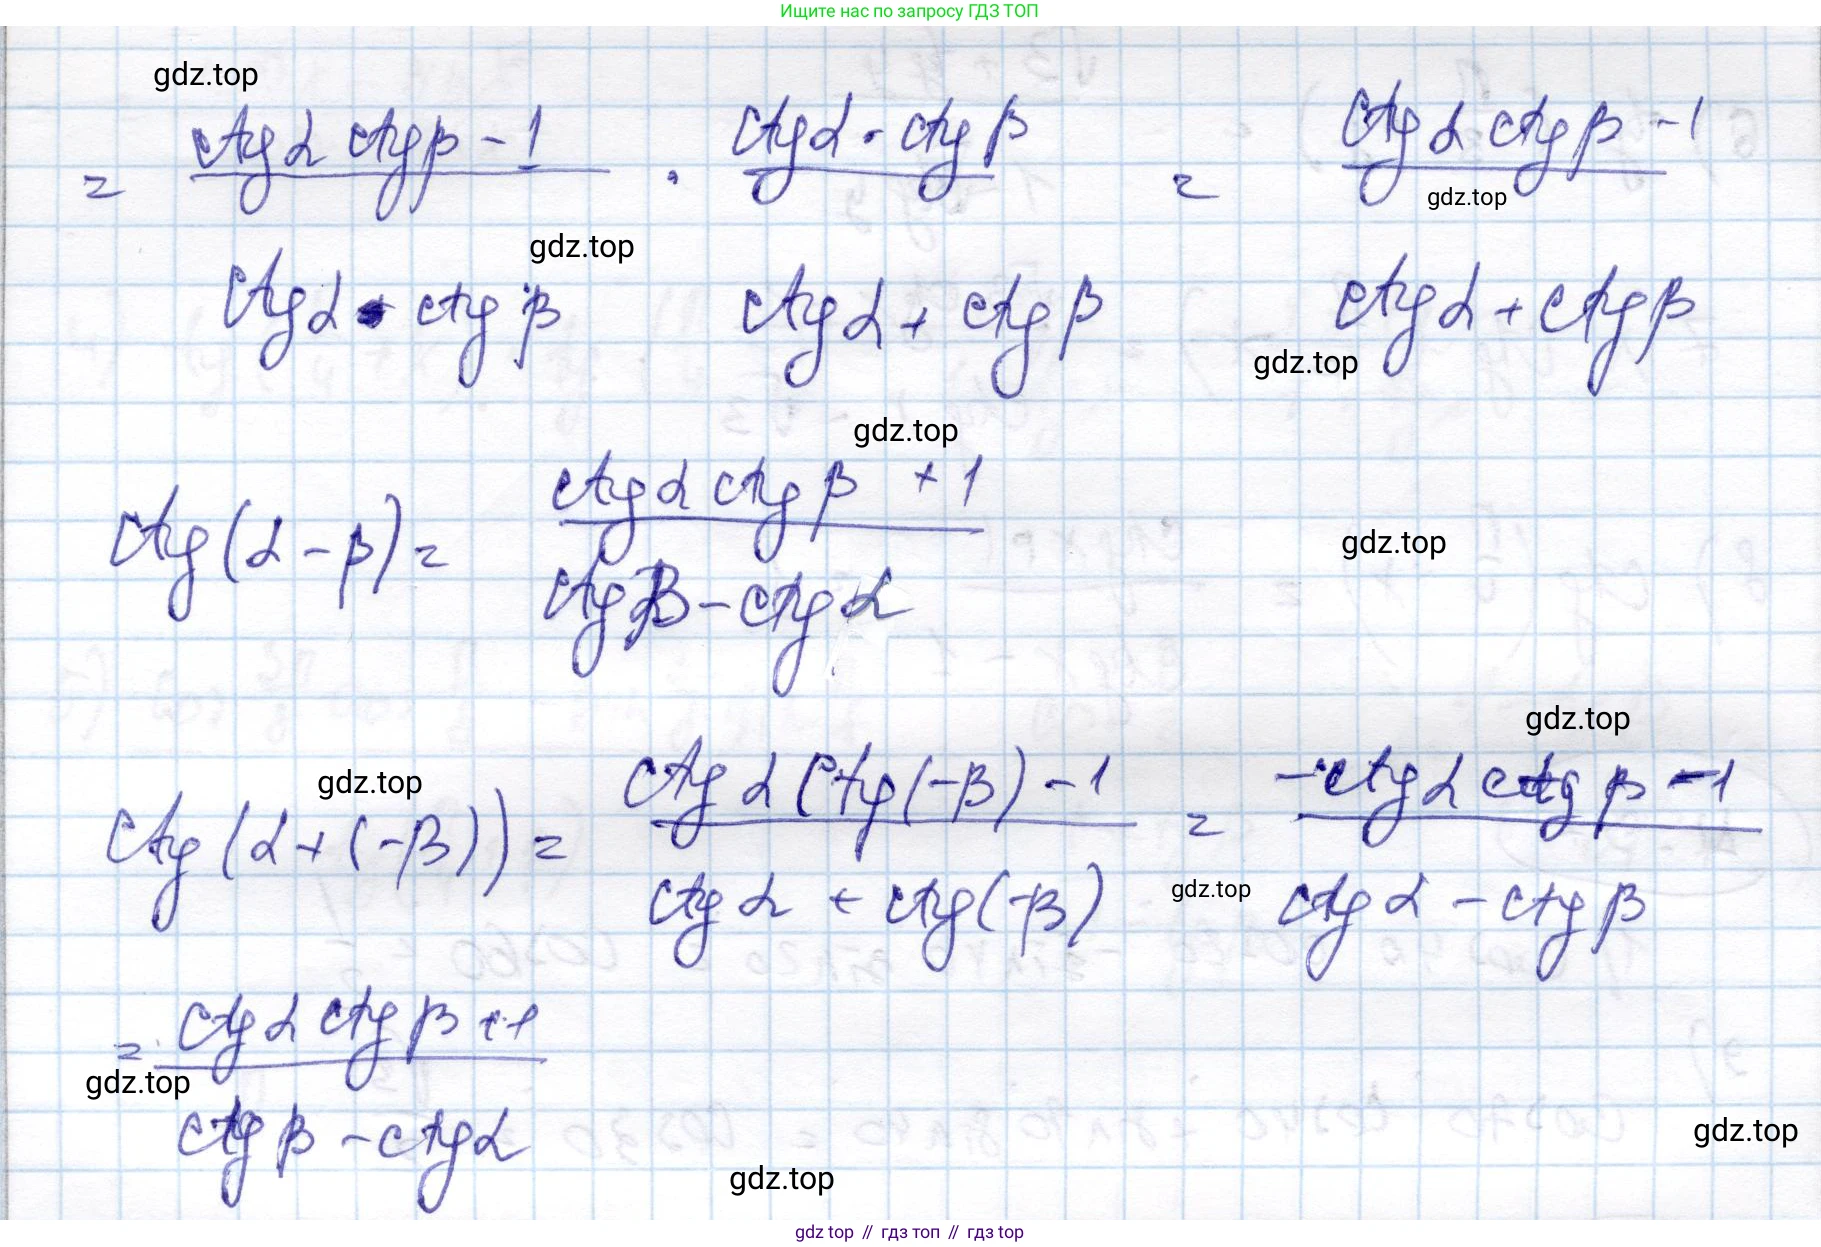 Ищите нас по запросу ГДЗ ТОП
gdz.top
= (ctg α ctg β - 1) / (ctg α · ctg β) · (ctg α · ctg β) / (ctg α + ctg β) = (ctg α ctg β - 1) / (ctg α + ctg β)
gdz.top
gdz.top
gdz.top
gdz.top
ctg(α - β) = (ctg α ctg β + 1) / (ctg β - ctg α)
gdz.top
gdz.top
gdz.top
ctg(α + (-β)) = (ctg α ctg(-β) - 1) / (ctg α + ctg(-β)) = (-ctg α ctg β - 1) / (ctg α - ctg β)
gdz.top
= (ctg α ctg β + 1) / (ctg β - ctg α)
gdz.top
gdz.top
gdz.top
gdz top // гдз топ // gdz.top